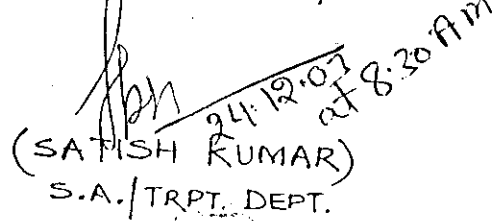 24.12.07
at 8.30 AM
(SATISH KUMAR)
S.A./TRPT. DEPT.